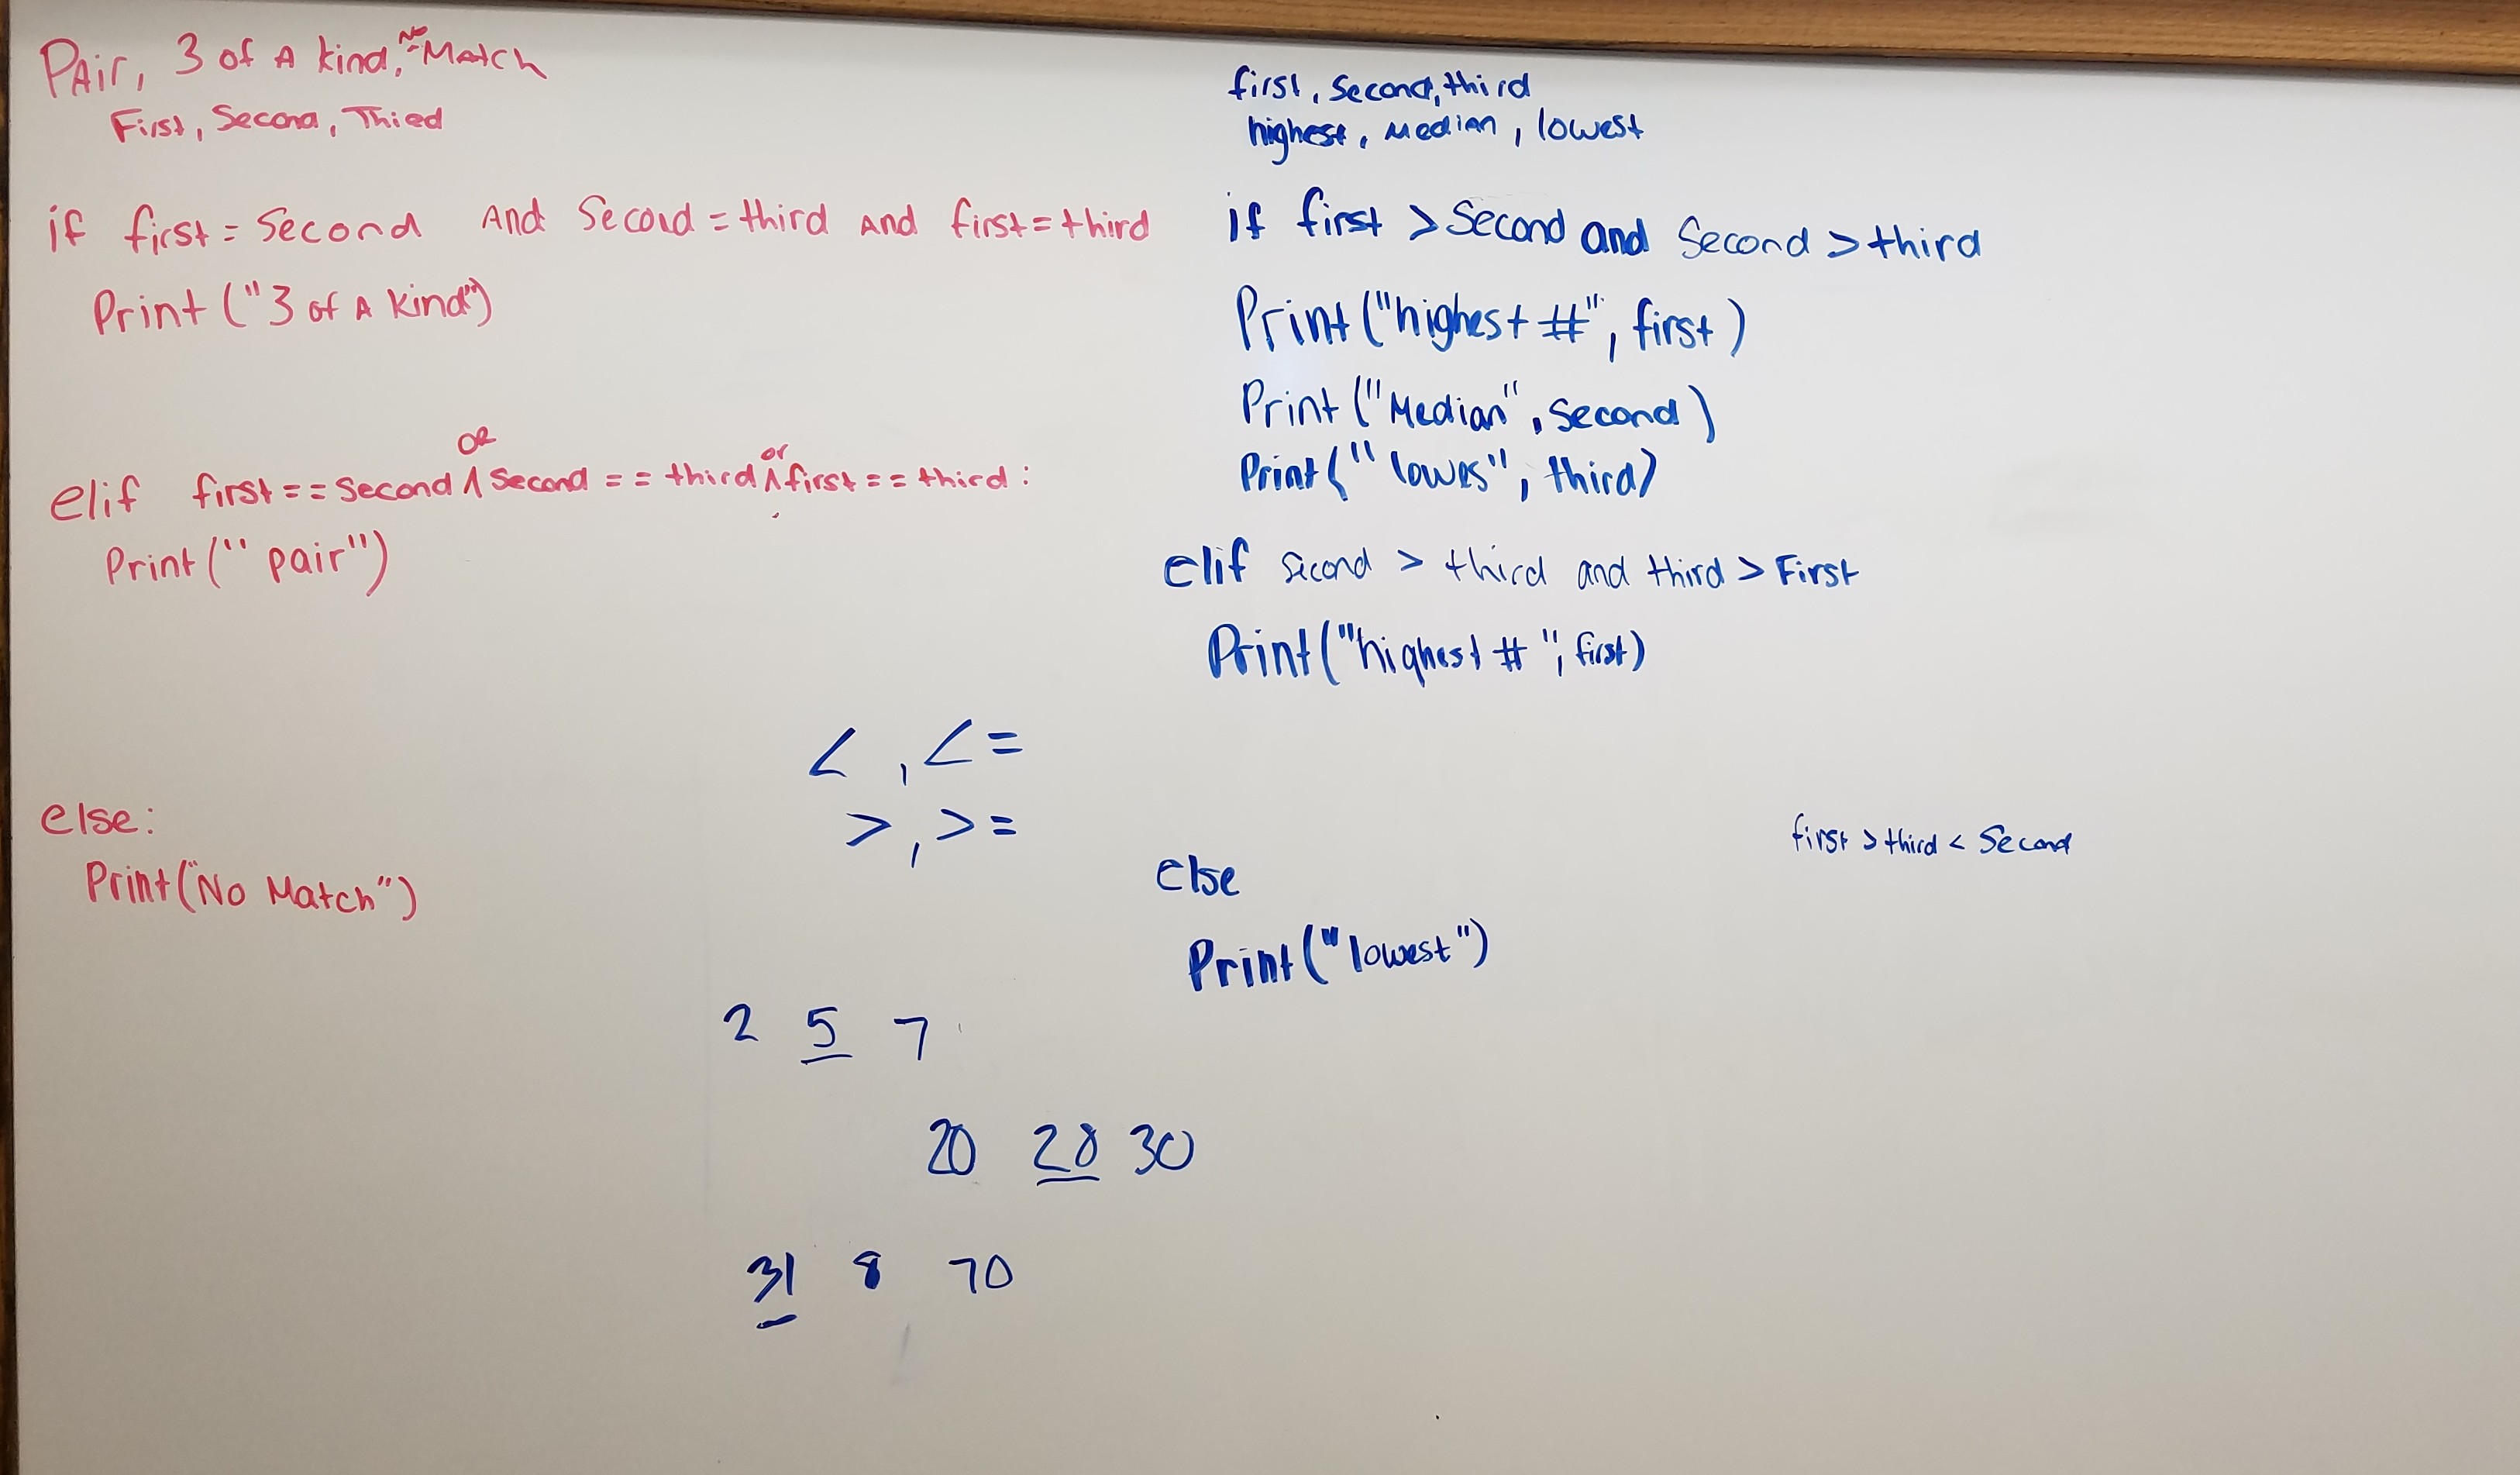 PAir, 3 of A kind, No Match
First, Second, Thied
if first = Second And Second = third And first = third
Print ("3 of A kind")
elif first == Second or Second == third or first == third :
Print (" pair")
else:
Print("No Match")
< , <=
> , >=
2 5 7
20 28 30
31 8 70
first, Second, third
highest, Median, lowest
if first > Second and Second > third
Print ("highest #", first )
Print ("Median", Second)
Print (" lowes", third)
elif second > third and third > First
Print ("highest # ", first)
first > third < Second
else
Print ("lowest")